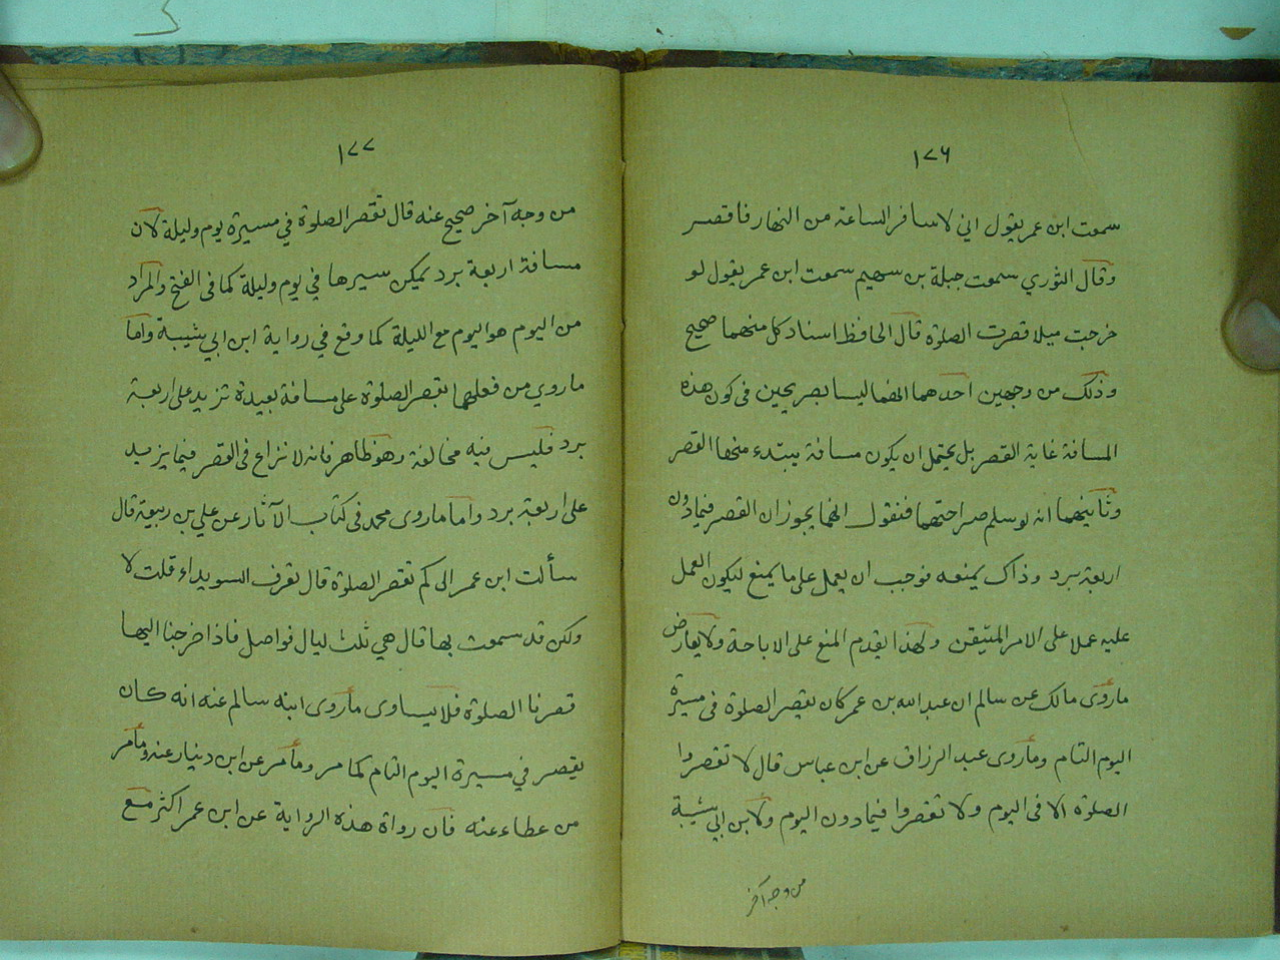 ١٧٦
سمعت ابن عمر يقول اني لاسافر الساعة من النهار فاقصر
وقال الثوري سمعت جبلة بن سهيم سمعت ابن عمر يقول لو
خرجت ميلا قصرت الصلوة قال الحافظ اسناد كل منهما صحيح
وذلك من وجهين احدهما انهما ليسا بصريحين في كون هذه
المسافة غاية القصر بل يحتمل ان يكون مسافة يبتدء منها القصر
وثانيهما انه لو سلم صراحتهما فنقول انهما يجوزان القصر فيما دون
اربعة برد وذاك يمنعه فوجب ان يعمل على ما يمنع ليكون العمل
عليه عملا على الامر المتيقن ولهذا يقدم المنع على الاباحة ولا يعارض
ماروى مالك عن سالم ان عبد الله بن عمر كان يقصر الصلوة في مسيرة
اليوم التام وماروى عبد الرزاق عن ابن عباس قال لا تقصروا
الصلوة الا في اليوم ولا تقصروا فيما دون اليوم ولابن ابي شيبة
من وجه آخر
١٧٧
من وجه آخر صحيح عنه قال تقصر الصلوة في مسيرة يوم وليلة لان
مسافة اربعة برد يمكن سيرها في يوم وليلة كما في الفتح والمراد
من اليوم هو اليوم مع الليلة كما وقع في رواية ابن ابي شيبة واما
ما روي من فعلهما بقصر الصلوة على مسافة بعيدة تزيد على اربعة
برد فليس فيه مخالفة وهو ظاهر فانه لا نزاع في القصر فيما يزيد
على اربعة برد واما ماروى محمد في كتاب الآثار عن علي بن ربيعة قال
سألت ابن عمر الى كم تقصر الصلوة قال تعرف السويداء قلت لا
ولكن قد سمعت بها قال هي ثلث ليال فواصل فاذا خرجنا اليها
قصرنا الصلوة فلا يساوى ماروى ابنه سالم عنه انه كان
يقصر في مسيرة اليوم التام كما مر ومامر عن ابن دينار عنه ومامر
من عطاء عنه فان رواة هذه الرواية عن ابن عمر اكثر مع